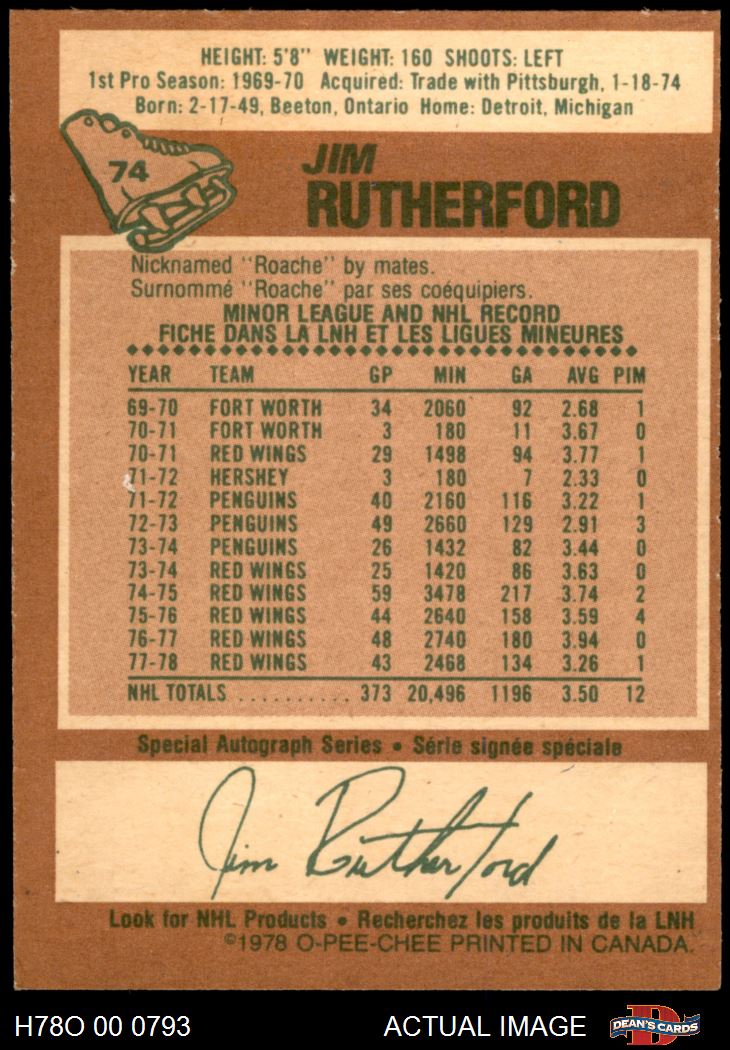 HEIGHT: 5'8" WEIGHT: 160 SHOOTS: LEFT
1st Pro Season: 1969-70 Acquired: Trade with Pittsburgh, 1-18-74
Born: 2-17-49, Beeton, Ontario Home: Detroit, Michigan
74
JIM
RUTHERFORD
Nicknamed "Roache" by mates.
Surnommé "Roache" par ses coéquipiers.
MINOR LEAGUE AND NHL RECORD
FICHE DANS LA LNH ET LES LIGUES MINEURES
YEAR TEAM GP MIN GA AVG PIM
69-70 FORT WORTH 34 2060 92 2.68 1
70-71 FORT WORTH 3 180 11 3.67 0
70-71 RED WINGS 29 1498 94 3.77 1
71-72 HERSHEY 3 180 7 2.33 0
71-72 PENGUINS 40 2160 116 3.22 1
72-73 PENGUINS 49 2660 129 2.91 3
73-74 PENGUINS 26 1432 82 3.44 0
73-74 RED WINGS 25 1420 86 3.63 0
74-75 RED WINGS 59 3478 217 3.74 2
75-76 RED WINGS 44 2640 158 3.59 4
76-77 RED WINGS 48 2740 180 3.94 0
77-78 RED WINGS 43 2468 134 3.26 1
NHL TOTALS .......... 373 20,496 1196 3.50 12
Special Autograph Series • Série signée spéciale
Jim Rutherford
Look for NHL Products • Recherchez les produits de la LNH
©1978 O-PEE-CHEE PRINTED IN CANADA.
H78O 00 0793 ACTUAL IMAGE DEAN'S CARDS